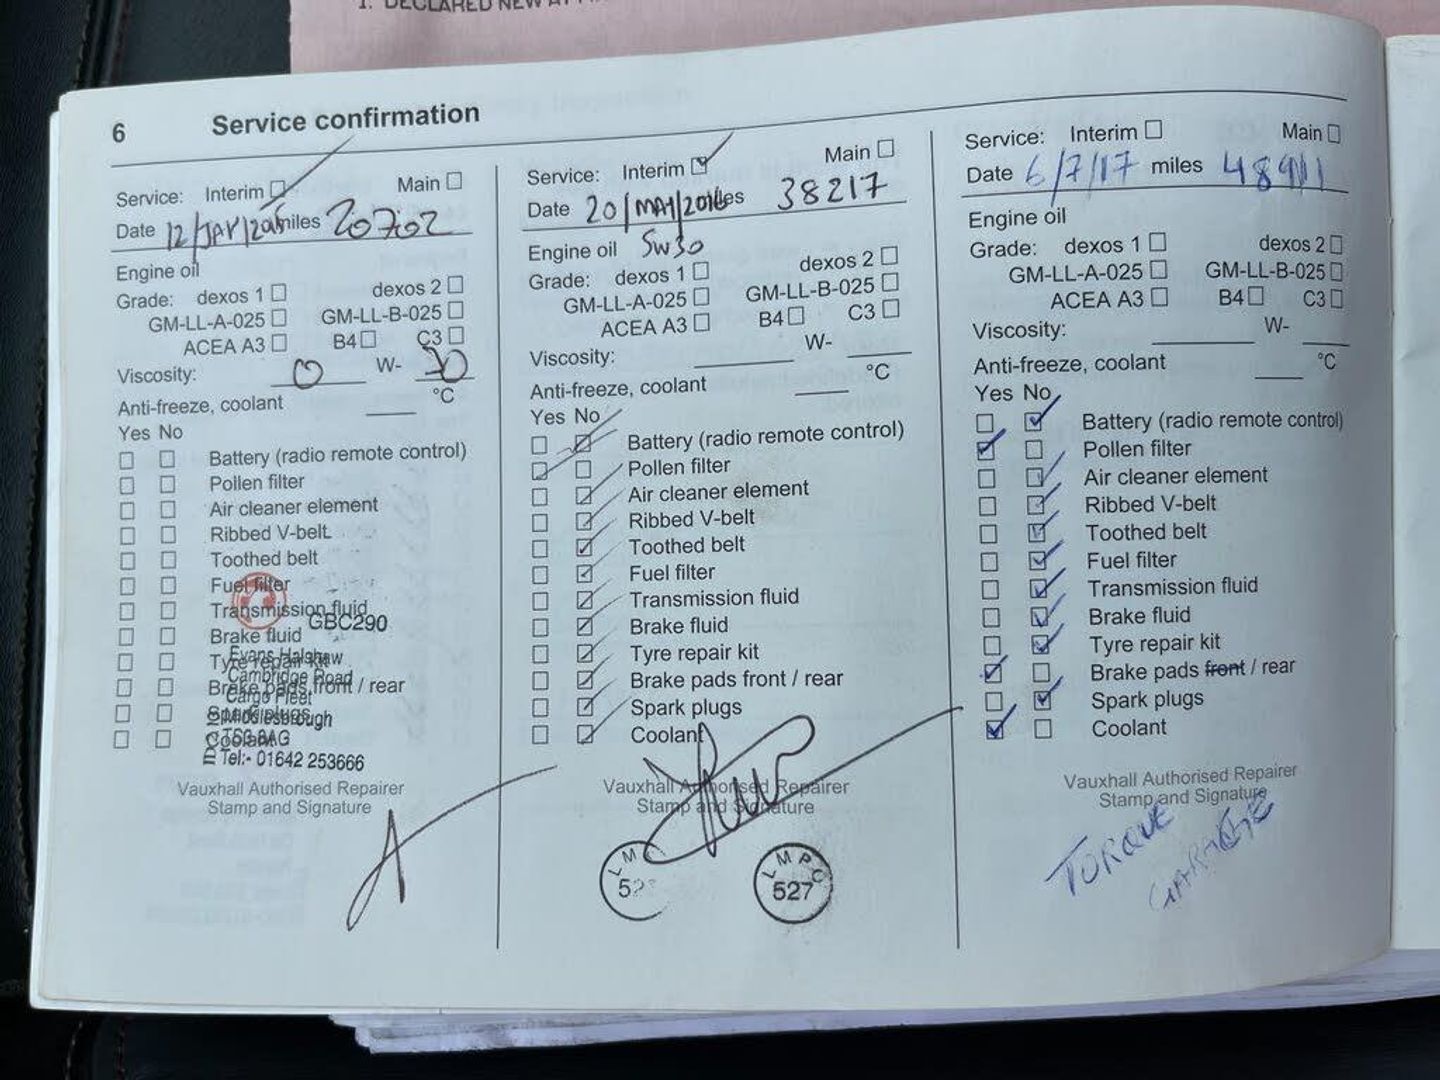 1. DECLARED NEW AT
6 Service confirmation
Service: Interim Main
Date 12/JAN/ miles 20702
Engine oil
Grade: dexos 1 dexos 2
GM-LL-A-025 GM-LL-B-025
ACEA A3 B4 C3
Viscosity: 0 W- 30
Anti-freeze, coolant °C
Yes No
Battery (radio remote control)
Pollen filter
Air cleaner element
Ribbed V-belt
Toothed belt
Fuel filter
Transmission fluid
GBC290
Brake fluid
Evans Halshaw
Tyre repair kit
Cambridge Road
Brake pads front / rear
Cargo Fleet
Spark plugs
Middlesbrough
Coolant
TS3 8AG
Tel:- 01642 253666
Vauxhall Authorised Repairer
Stamp and Signature
Service: Interim Main
Date 20/MAY/2016 miles 38217
Engine oil 5W30
Grade: dexos 1 dexos 2
GM-LL-A-025 GM-LL-B-025
ACEA A3 B4 C3
Viscosity: W-
Anti-freeze, coolant °C
Yes No
Battery (radio remote control)
Pollen filter
Air cleaner element
Ribbed V-belt
Toothed belt
Fuel filter
Transmission fluid
Brake fluid
Tyre repair kit
Brake pads front / rear
Spark plugs
Coolant
Vauxhall Authorised Repairer
Stamp and Signature
LM
LMPC
527
Service: Interim Main
Date 6/7/17 miles 48911
Engine oil
Grade: dexos 1 dexos 2
GM-LL-A-025 GM-LL-B-025
ACEA A3 B4 C3
Viscosity: W-
Anti-freeze, coolant °C
Yes No
Battery (radio remote control)
Pollen filter
Air cleaner element
Ribbed V-belt
Toothed belt
Fuel filter
Transmission fluid
Brake fluid
Tyre repair kit
Brake pads front / rear
Spark plugs
Coolant
Vauxhall Authorised Repairer
Stamp and Signature
TORQUE
GARAGE